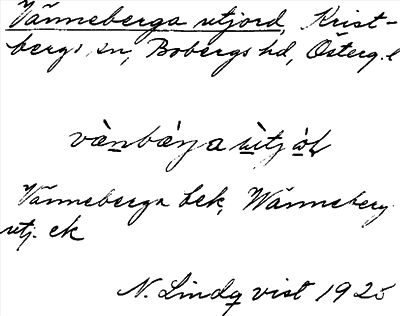 Vänneberga utjord, Krist-
bergs sn, Bobergs hd, Österg. l
vànbærja ùtjol
Vänneberga bek, Wänneberg
utj. ek
N. Lindqvist 1925